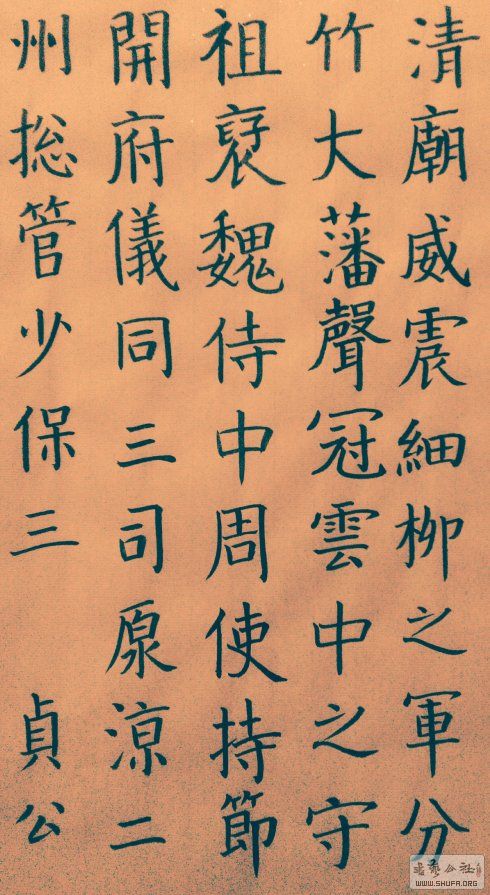 清廟威震細柳之軍分
竹大藩聲冠雲中之守
祖裦魏侍中周使持節
開府儀同三司原涼二
州捴管少保三 貞公
公社
WWW.SHUFA.ORG